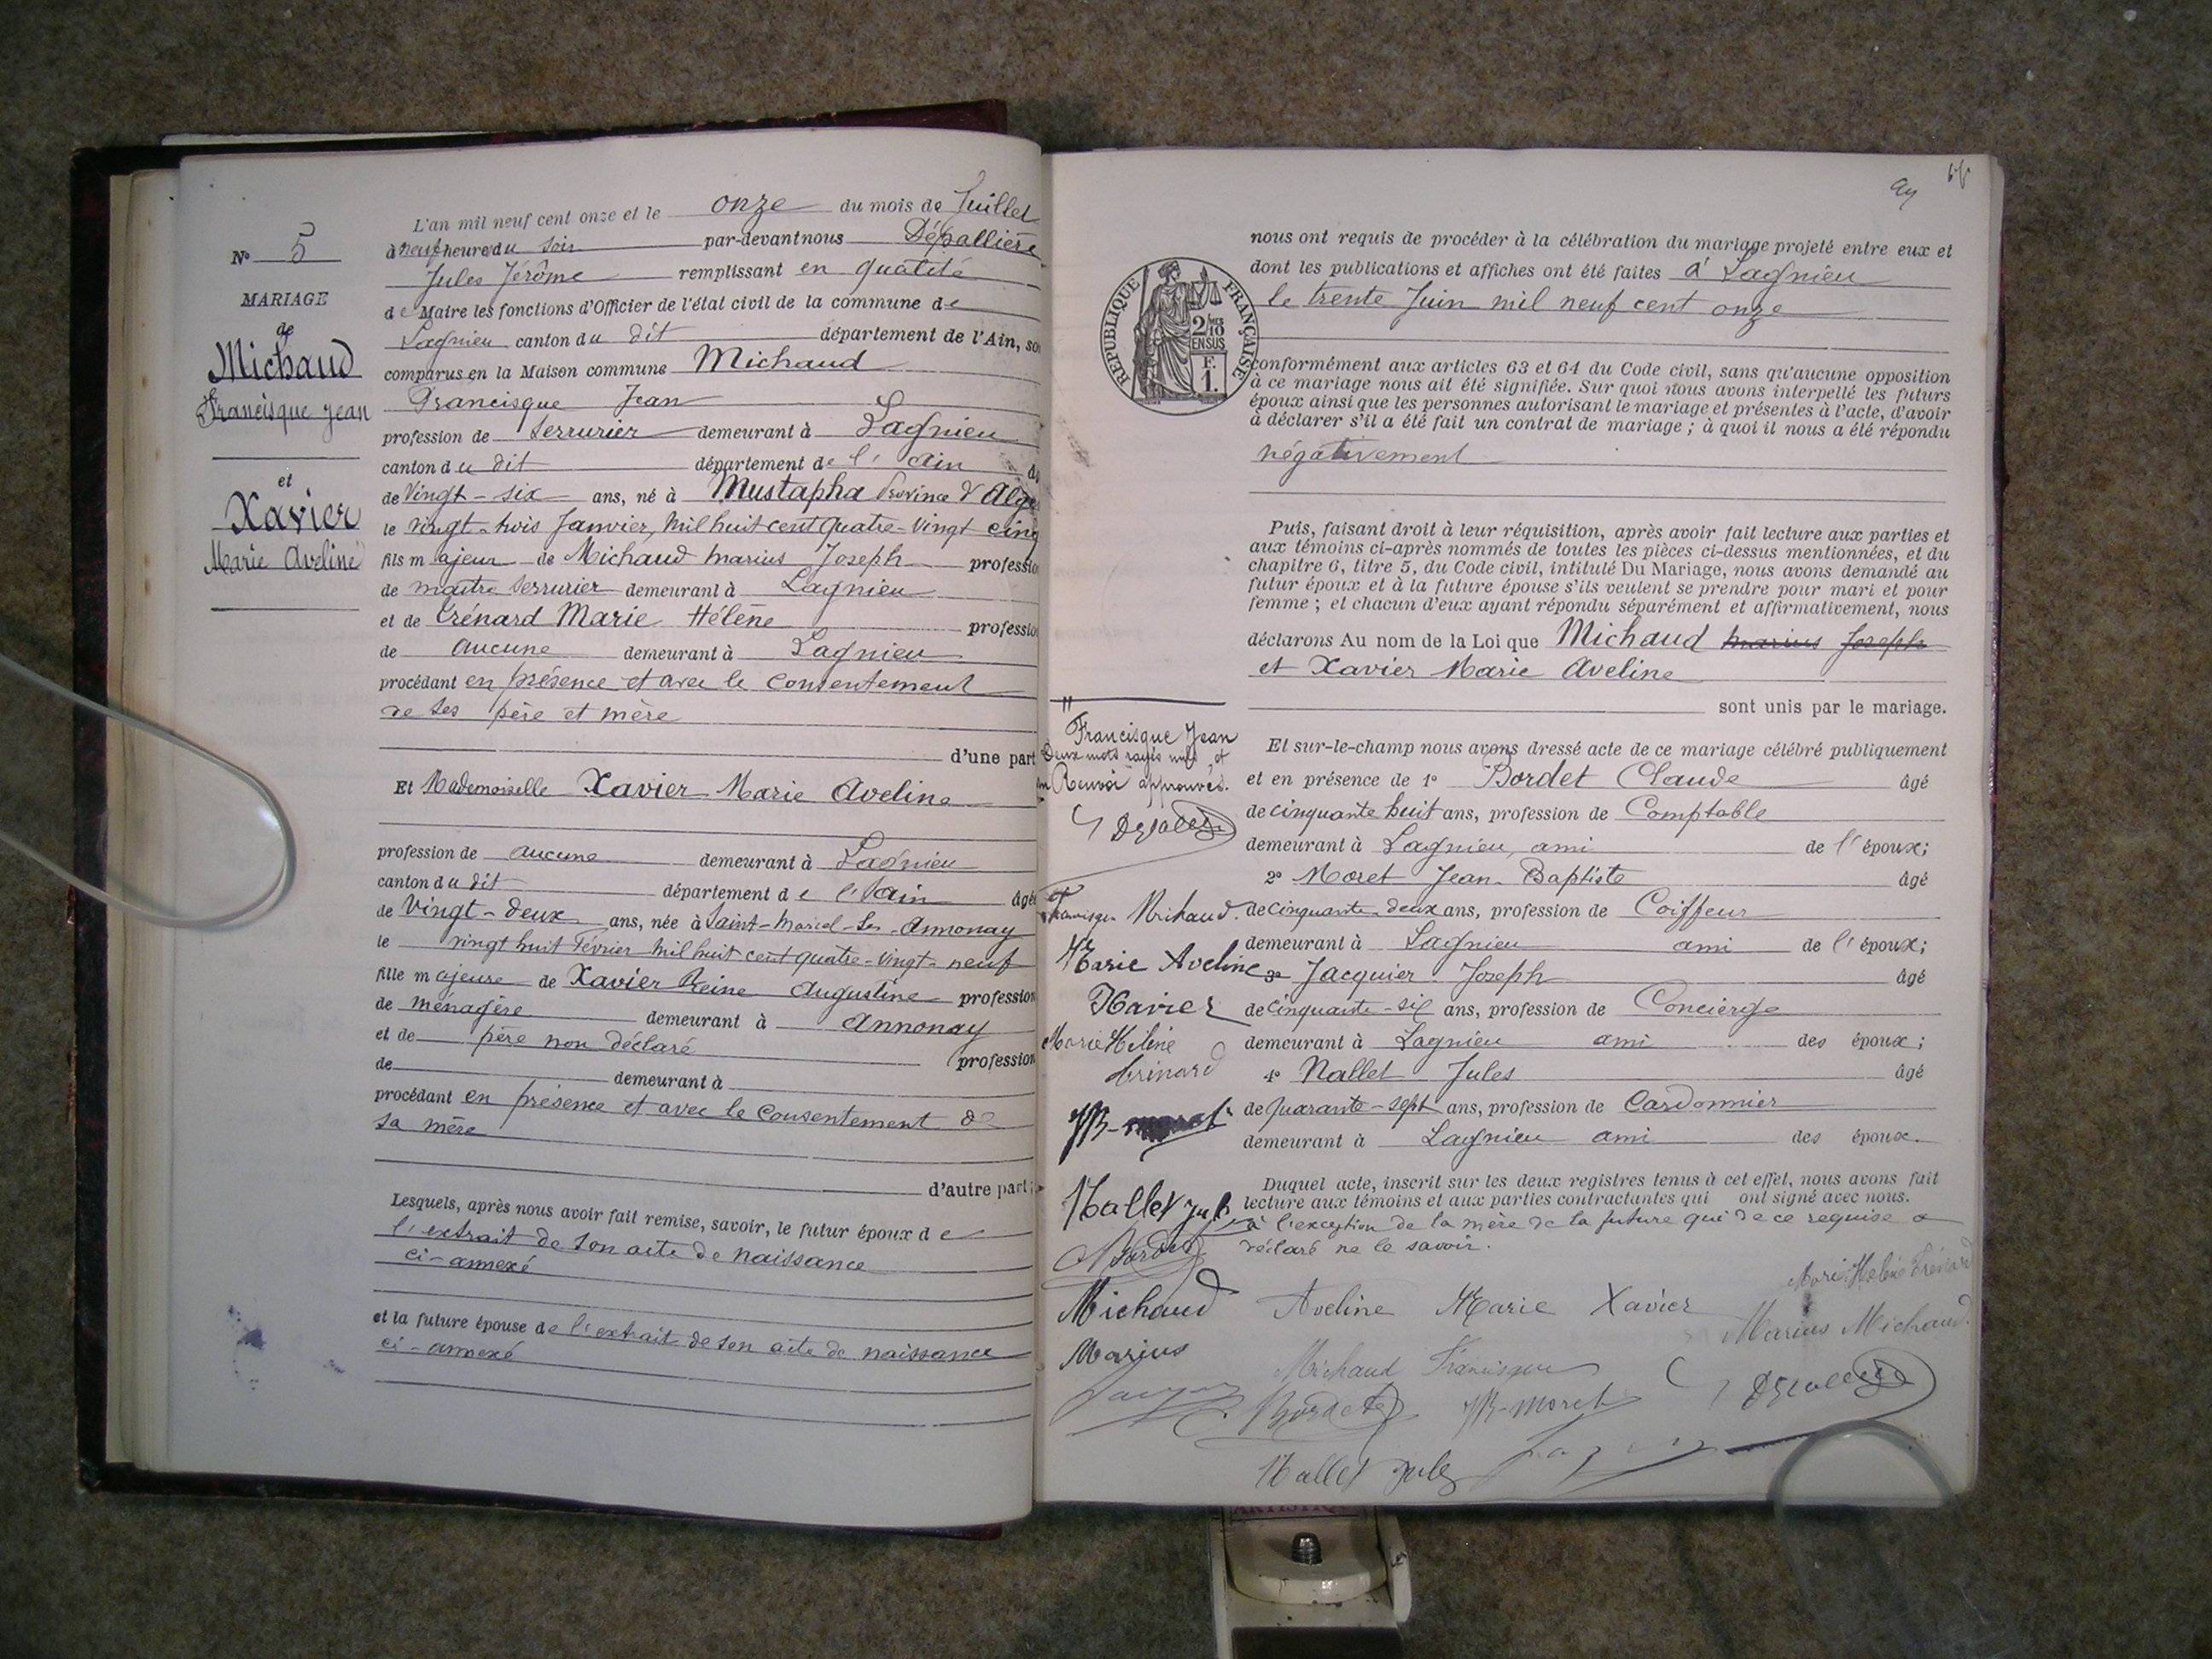 N° 5
MARIAGE
de
Michaud
Francisque Jean
et
Xavier
Marie Aveline
L'an mil neuf cent onze et le onze du mois de Juillet
à neuf heure du soir par-devant nous Dépallière
Jules Jérôme remplissant en qualité
de Maire les fonctions d'Officier de l'état civil de la commune de
Lagnieu canton du dit département de l'Ain, so
comparus en la Maison commune Michaud
Francisque Jean
profession de Serrurier demeurant à Lagnieu
canton du dit département de l'Ain
de Vingt-six ans, né à Mustapha Province d'Alge
le vingt-trois Janvier, mil huit cent quatre-vingt cinq
fils majeur de Michaud Marius Joseph professio
de maître serrurier demeurant à Lagnieu
et de Trénard Marie Hélène professio
de aucune demeurant à Lagnieu
procédant en présence et avec le consentement
de ses père et mère
d'une part
Et Mademoiselle Xavier Marie Aveline
profession de aucune demeurant à Lagnieu
canton du dit département de l'Ain âgée
de Vingt-deux ans, née à Saint-Marcel-les-Annonay
le vingt huit Février mil huit cent quatre-vingt-neuf
fille majeure de Xavier Reine Augustine profession
de ménagère demeurant à Annonay
et de père non déclaré profession
de demeurant à
procédant en présence et avec le consentement de
sa mère
d'autre part;
Lesquels, après nous avoir fait remise, savoir, le futur époux de
l'extrait de son acte de naissance
ci-annexé
et la future épouse de l'extrait de son acte de naissance
ci-annexé
nous ont requis de procéder à la célébration du mariage projeté entre eux et
dont les publications et affiches ont été faites à Lagnieu
le trente Juin mil neuf cent onze
REPUBLIQUE FRANÇAISE
2/10 MES
EN SUS
F.
1.
conformément aux articles 63 et 64 du Code civil, sans qu'aucune opposition
à ce mariage nous ait été signifiée. Sur quoi nous avons interpellé les futurs
époux ainsi que les personnes autorisant le mariage et présentes à l'acte, d'avoir
à déclarer s'il a été fait un contrat de mariage; à quoi il nous a été répondu
négativement
Puis, faisant droit à leur réquisition, après avoir fait lecture aux parties et
aux témoins ci-après nommés de toutes les pièces ci-dessus mentionnées, et du
chapitre 6, titre 5, du Code civil, intitulé Du Mariage, nous avons demandé au
futur époux et à la future épouse s'ils veulent se prendre pour mari et pour
femme; et chacun d'eux ayant répondu séparément et affirmativement, nous
déclarons Au nom de la Loi que Michaud Marius Joseph
et Xavier Marie Aveline
sont unis par le mariage.
Francisque Jean
Deux mots rayés nuls et
un Renvoi approuvés.
Et sur-le-champ nous avons dressé acte de ce mariage célébré publiquement
et en présence de 1° Bordet Claude âgé
de cinquante huit ans, profession de Comptable
demeurant à Lagnieu, ami de l'époux;
2° Moret Jean-Baptiste âgé
de cinquante-deux ans, profession de Coiffeur
demeurant à Lagnieu ami de l'époux;
3° Jacquier Joseph âgé
de cinquante-six ans, profession de Concierge
demeurant à Lagnieu ami des époux;
4° Nallet Jules âgé
de quarante-sept ans, profession de Cardonnier
demeurant à Lagnieu ami des époux.
Duquel acte, inscrit sur les deux registres tenus à cet effet, nous avons fait
lecture aux témoins et aux parties contractantes qui ont signé avec nous.
à l'exception de la mère de la future qui de ce requise a
déclaré ne le savoir.
Michaud
Marie Aveline
Xavier
Marie Hélène
Nallet Jules
Bordet
Michaud
Marius
Aveline Marie Xavier
Marie Hélène Trénard
Marius Michaud
Michaud Francisque
Bordet
JB-Moret
Nallet Jules